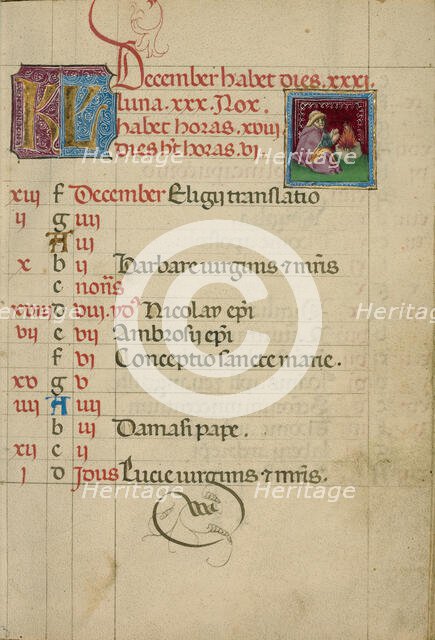 KL December habet dies. xxxi.
luna. xxx. Nox.
habet horas. xviii.
dies ht horas. vi
xiii f December Eligii translatio
g iiii
ii A iii
x b ii Barbare virginis & mris
c nons
xviii d viii. yd9 Nicolay epi
vii e vii Ambrosij epi
f vi Conceptio sancte marie.
xv g v
iiii A iiii
b iii Damasi pape.
xii c ii
i d Jdus Lucie virginis & mris.
Heritage
Heritage
Heritage
Heritage
Heritage
Heritage
Heritage
Heritage